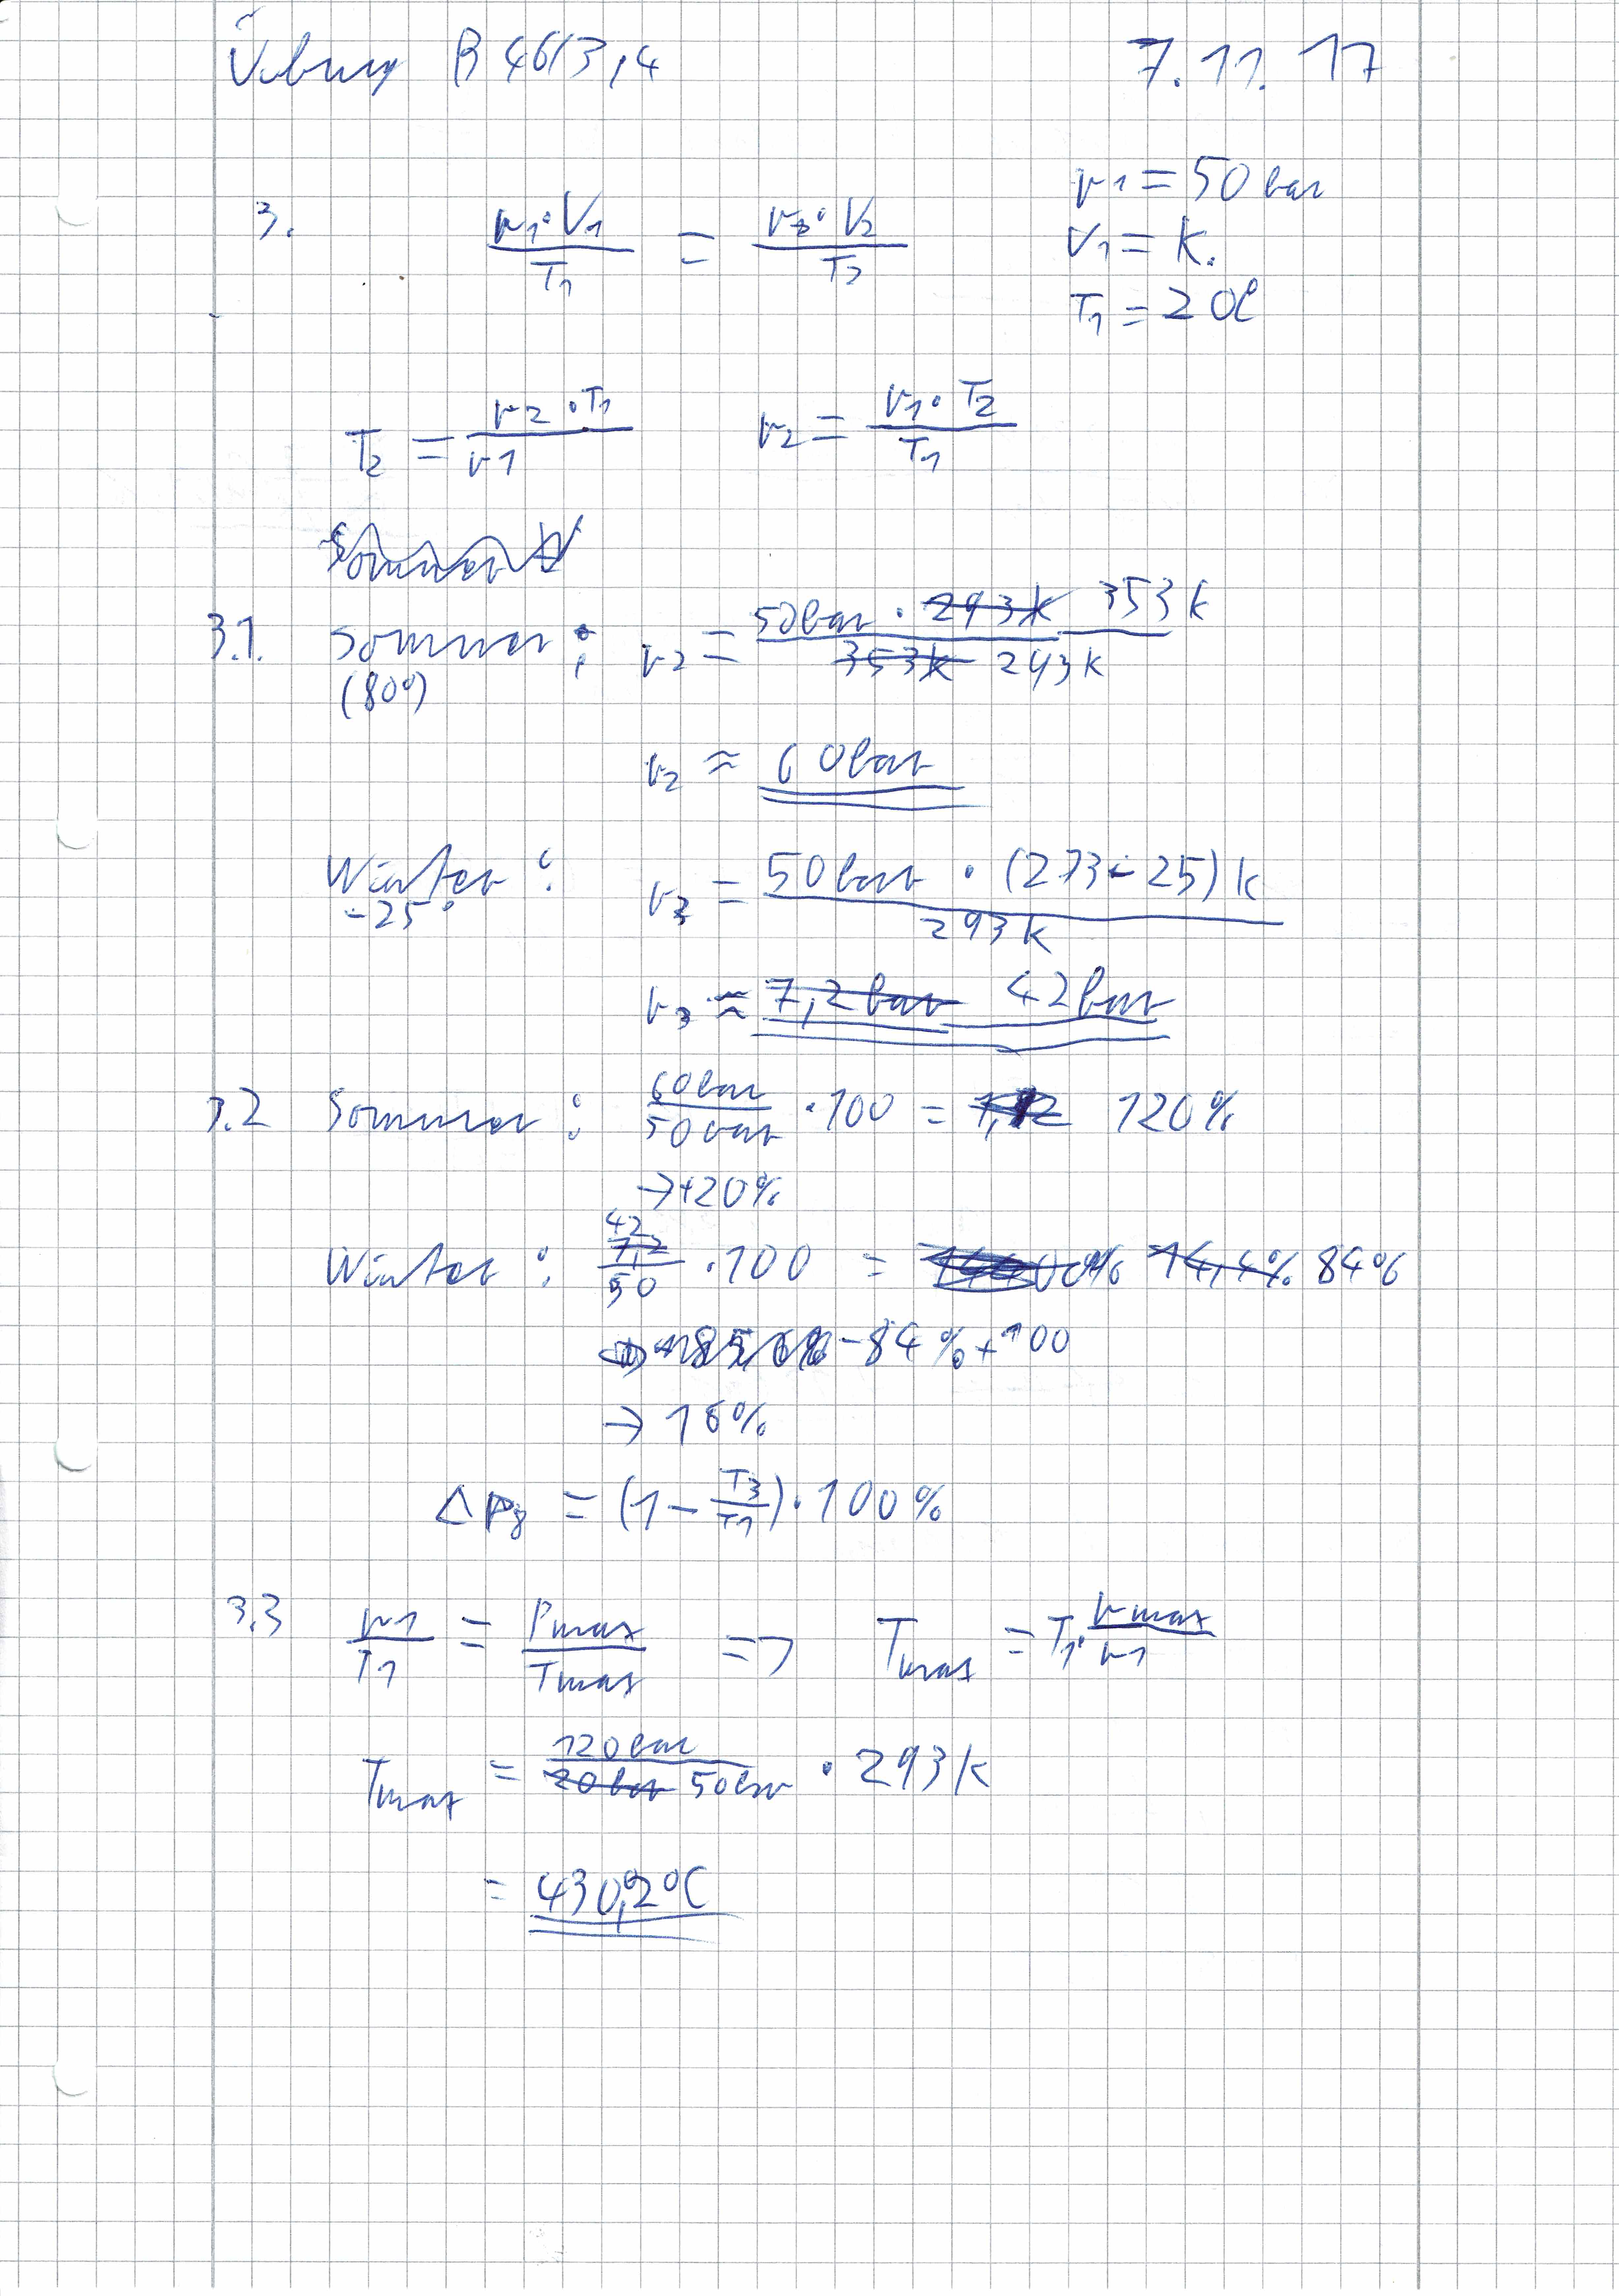 Übung B 46/3,4 7.11.17
3. p1·V1 / T1 = p2·V2 / T2
p1 = 50 bar
V1 = K.
T1 = 20°C
T2 = p2·T1 / p1 p2 = p1·T2 / T1
Sommer
3.1. Sommer: p2 = 50bar · 293K 353K / 353K 293K
(80°)
p2 ≈ 60bar
Winter: p3 = 50bar · (273-25)K / 293K
-25°
p3 ≈ 7,2bar 42bar
3.2 Sommer: 60bar / 50bar ·100 = 120%
→+20%
Winter: 42 7,2 / 50 ·100 = 14,4% 84%
-84%+100
→ 16%
Δp3 = (1 - T3/T1)·100%
3.3 p1 / T1 = Pmax / Tmax => Tmax = T1· pmax / p1
Tmax = 120bar / 20bar 50bar · 293K
= 430,2°C